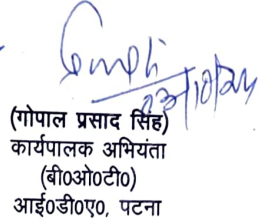 (गोपाल प्रसाद सिंह)
कार्यपालक अभियंता
(बी०ओ०टी०)
आई०डी०ए०, पटना